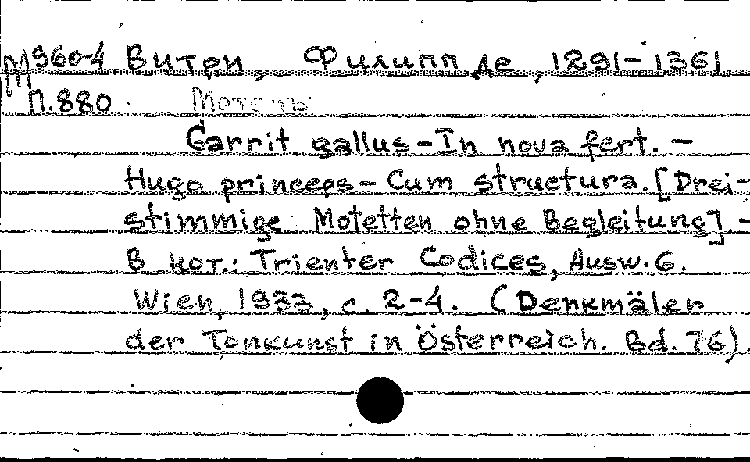 М960-4 Витри, Филипп де, 1291-1361
П.880. Мотеты
Garrit gallus - In nova fert. -
Hugo princeps - Cum structura. [Drei-
stimmige Motetten ohne Begleitung] -
В кот.: Trienter Codices, Ausw. 6.
Wien, 1933, с. 2-4. (Denkmäler
der Tonkunst in Österreich. Bd. 76).